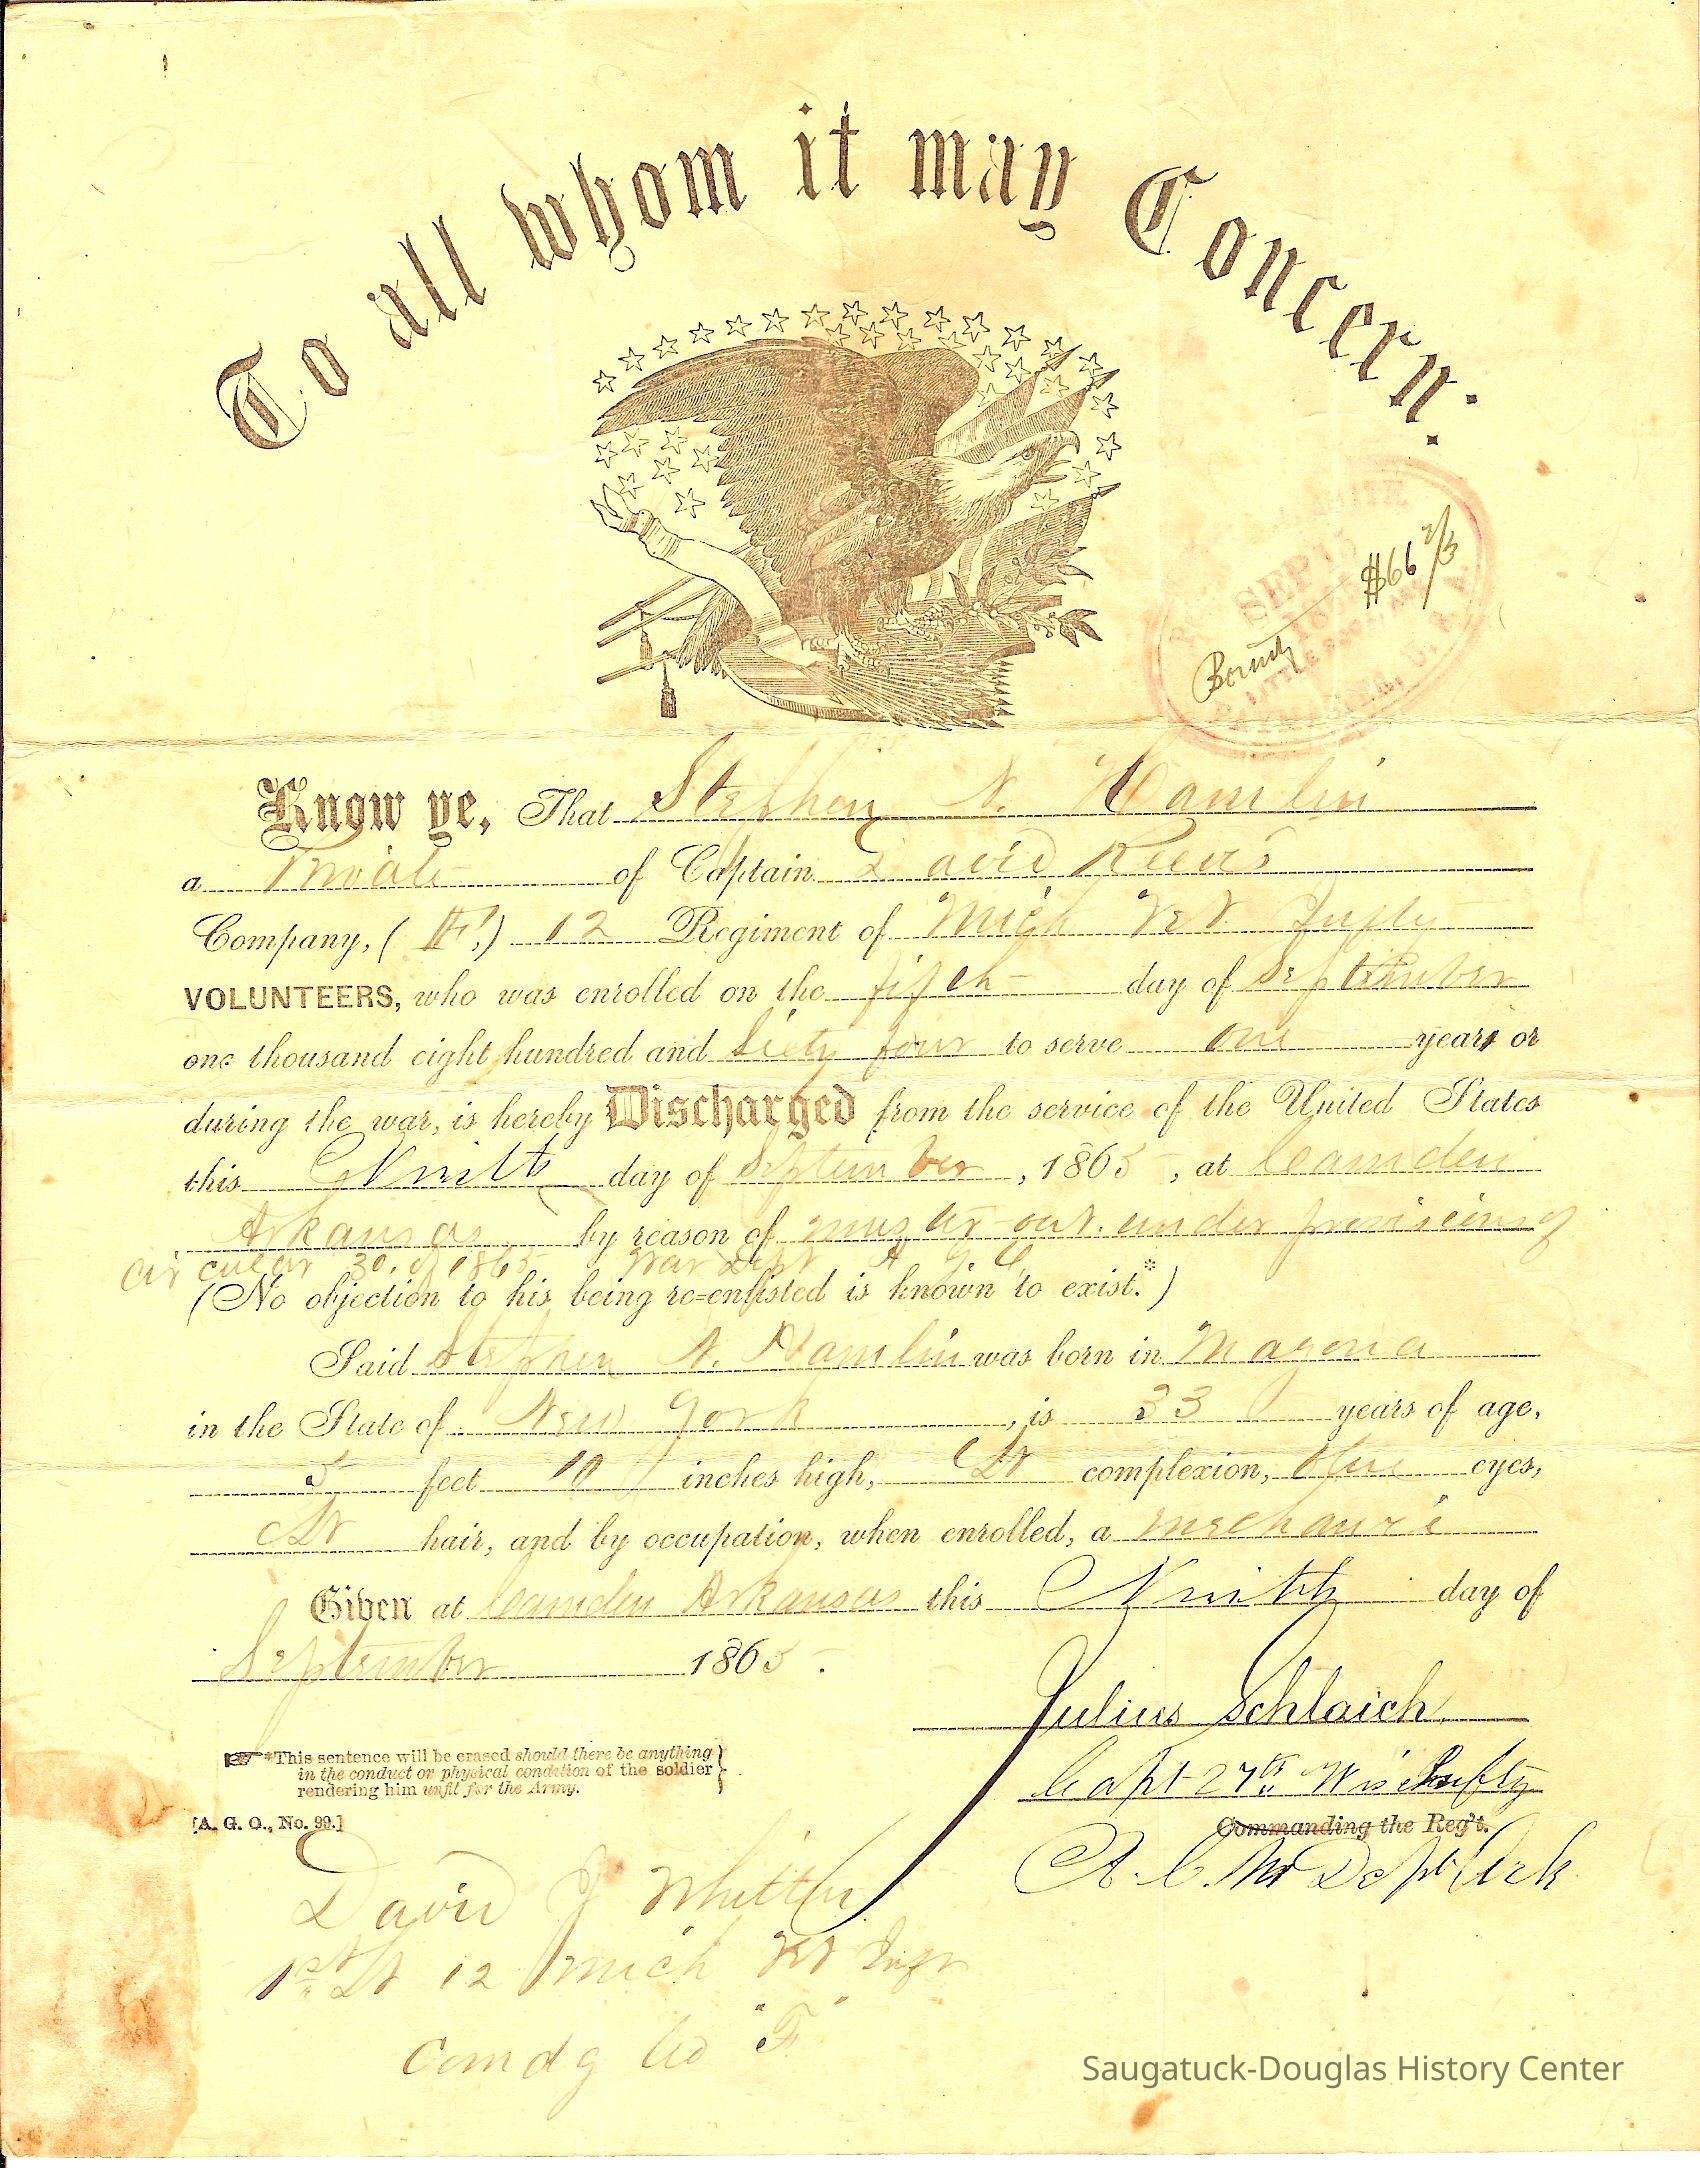 To all whom it may Concern:
SEP 15
Bounty $66 2/3
Know ye, That Stephen N. Hamlin
a Private of Captain David Reeves
Company, (F,) 12 Regiment of Mich Vet Inftly
VOLUNTEERS, who was enrolled on the fifth day of September
one thousand eight hundred and Sixty four to serve one years or
during the war, is hereby Discharged from the service of the United States
this Ninth day of September, 1865, at Camden
Arkansas by reason of muster-out. under provisions of
circular 30. of 1865 War Dept A G O
(No objection to his being re-enlisted is known to exist.*)
Said Stephen N. Hamlin was born in Magona
in the State of New York, is 33 years of age,
5 feet 10 inches high, Lt complexion, blue eyes,
Lt hair, and by occupation, when enrolled, a mechanic
Given at Camden Arkansas this Ninth day of
September 1865.
Julius Schlaich.
Capt 27th Wis Infty
Commanding the Reg't.
A. C. M Dept Ark
*This sentence will be erased should there be anything
in the conduct or physical condition of the soldier
rendering him unfit for the Army.
[A. G. O., No. 99.]
David
1st Lt 12 Mich Vet Infr
Comdg Co "F"
Saugatuck-Douglas History Center